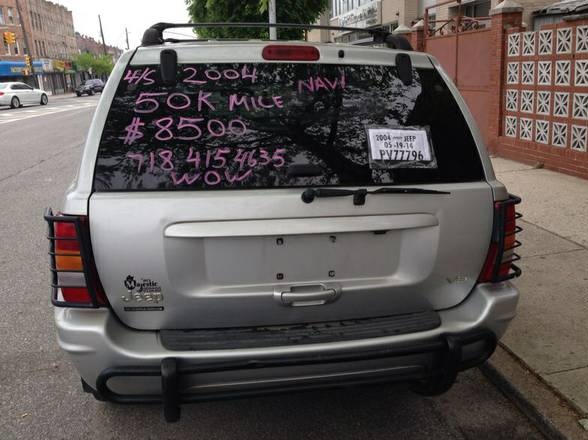 4/S 2004 NAVI
50K MILE
$8500
718 415 4635
WOW
2004 JEEP
05-19-14
PV77796
Majestic
Jeep
V8